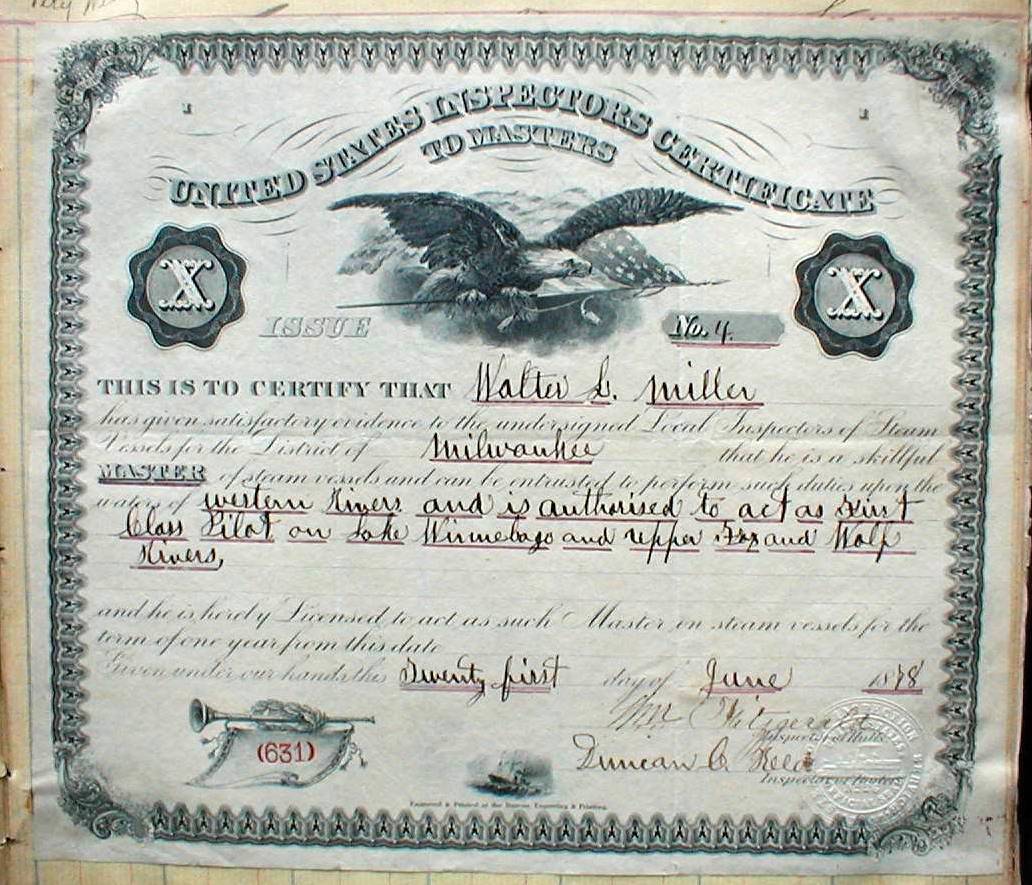 UNITED STATES INSPECTORS CERTIFICATE
TO MASTERS
X
X
ISSUE
No. 4.
THIS IS TO CERTIFY THAT Walter L. Miller
has given satisfactory evidence to the undersigned Local Inspectors of Steam
Vessels for the District of Milwaukee that he is a skillful
MASTER of steam vessels and can be entrusted to perform such duties upon the
waters of western Rivers and is authorised to act as First
Class Pilot on Lake Winnebago and upper Fox and Wolf
Rivers,
and he is hereby Licensed to act as such Master on steam vessels for the
term of one year from this date
Given under our hands this Twenty first day of June 1878
Wm Fitzgerald
Inspector of Hulls
(631)
Duncan C.
Inspector of Boilers
Engraved & Printed at the Bureau, Engraving & Printing.